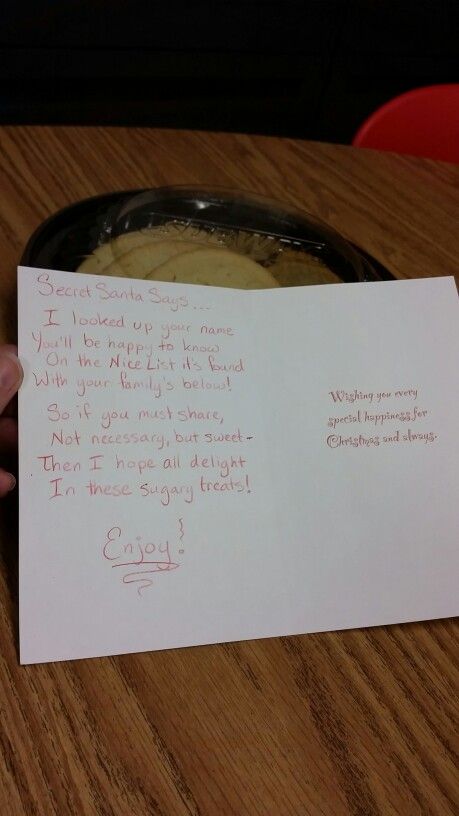 Secret Santa Says...
I looked up your name
You'll be happy to know
On the Nice List it's found
With your family's below!
So if you must share,
Not necessary, but sweet-
Then I hope all delight
In these sugary treats!
Enjoy!
Wishing you every
special happiness for
Christmas and always.